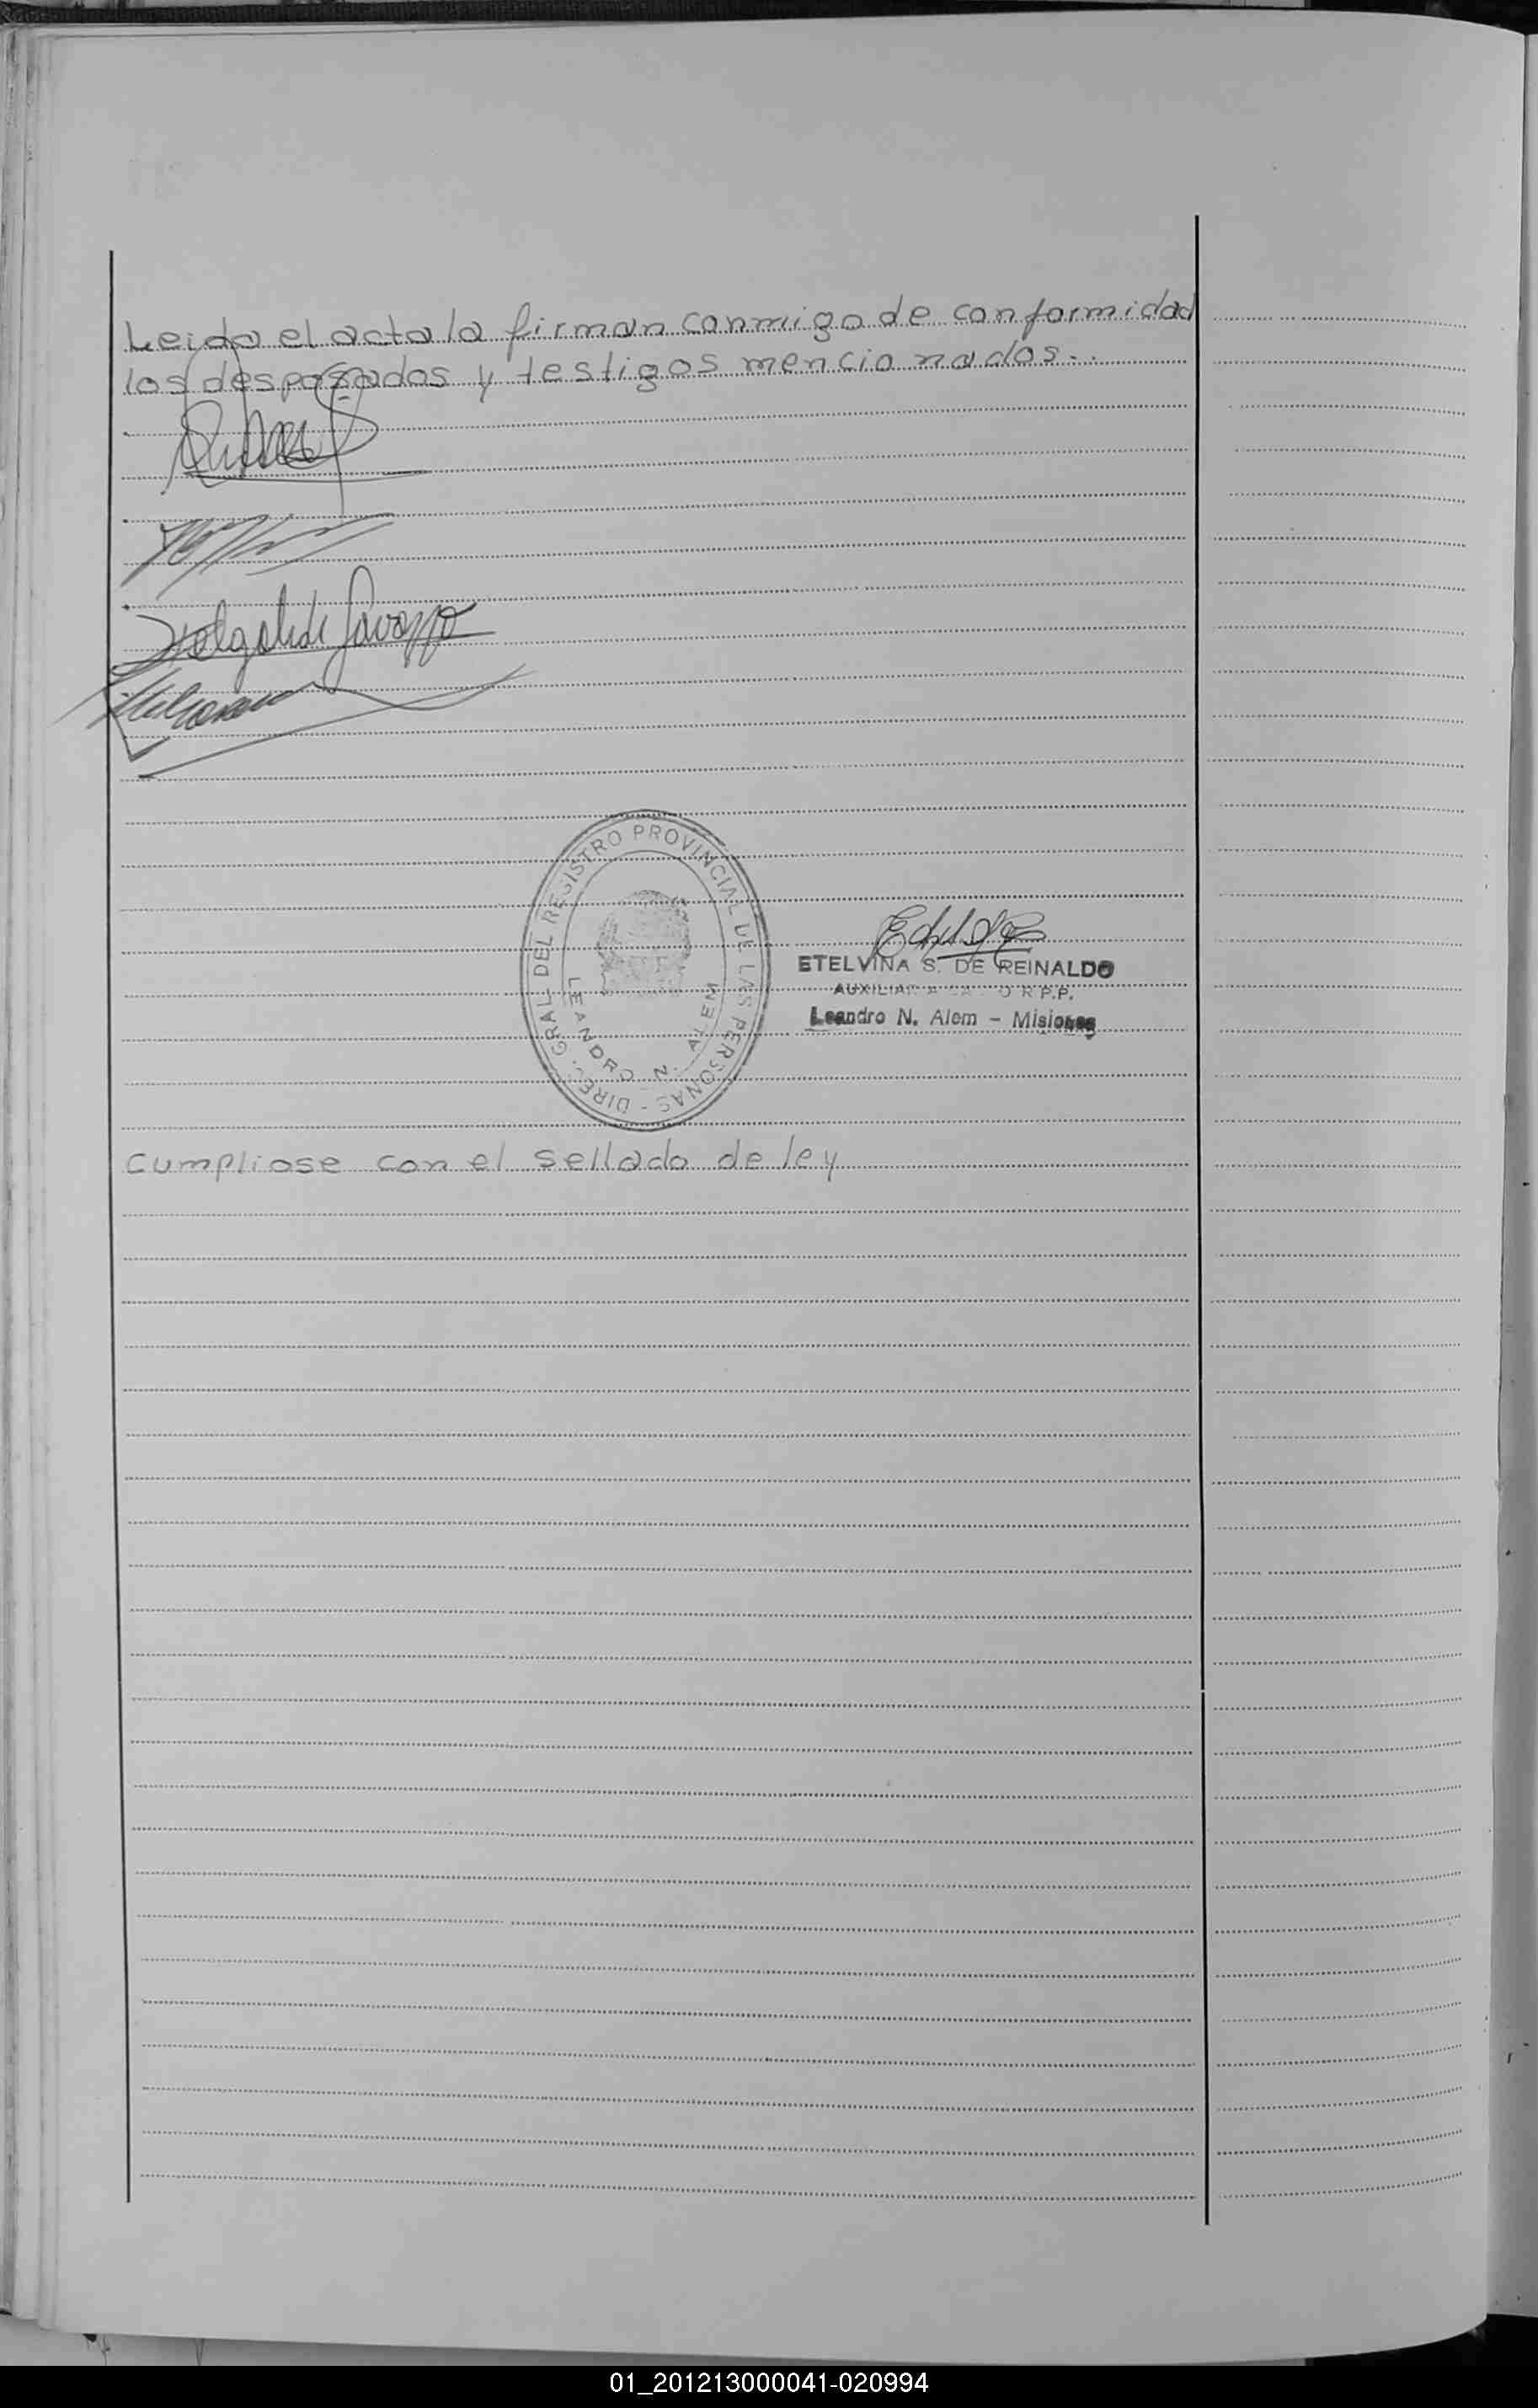 Leida el acta la firman conmigo de conformidad
los desposados y testigos mencionados..
DIREC. GRAL. DEL REGISTRO PROVINCIAL DE LAS PERSONAS -
LEANDRO N. ALEM
ETELVINA S. DE REINALDO
AUXILIAR
Leandro N. Alem - Misiones
Cumpliose con el sellado de ley
01_201213000041-020994